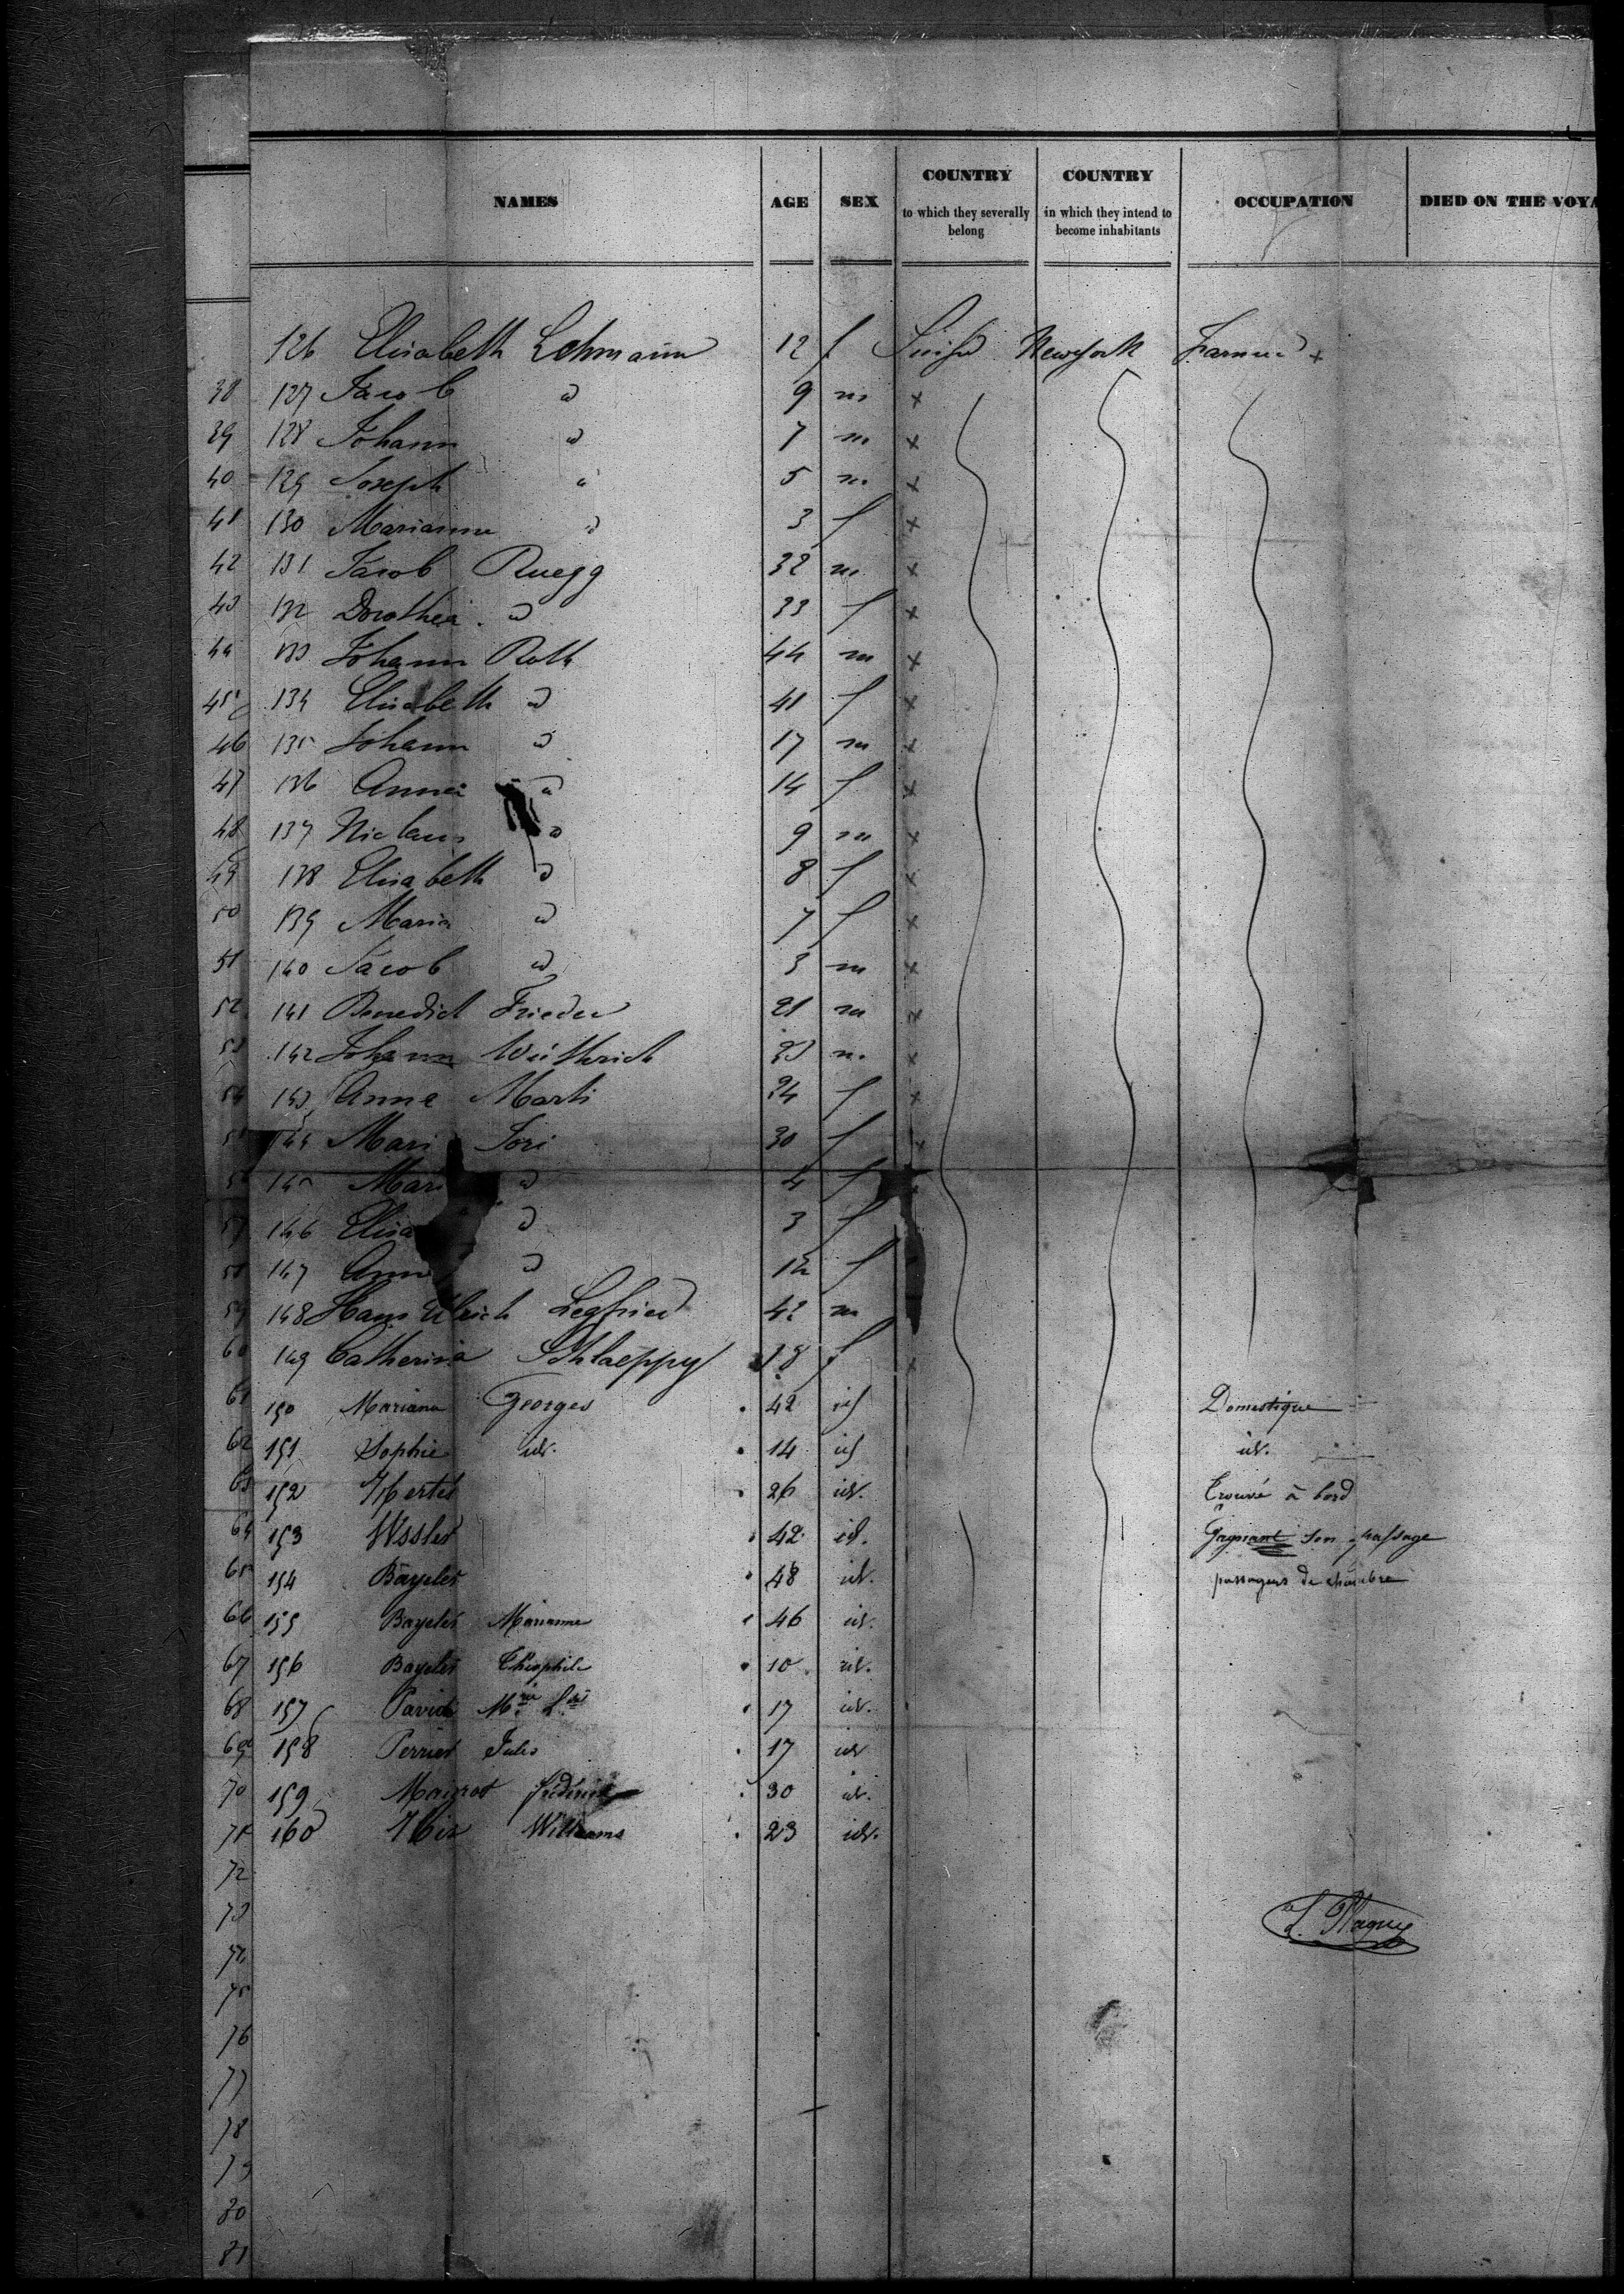 NAMES AGE SEX COUNTRY to which they severally belong COUNTRY in which they intend to become inhabitants OCCUPATION DIED ON THE VOYA
126 Elisabeth Lehmann 12 f Newyork
38 127 Jacob " 9 m x
39 128 Johann " 7 m x
40 129 Joseph " 5 m x
41 130 Marianne " 3 f x
42 131 Jacob Ruegg 32 m x
43 132 Dorothea " 33 f x
44 133 Johann Roth 44 m x
45 134 Elisabeth " 41 f x
46 135 Johann " 17 m x
47 136 Anna " 14 f x
48 137 Niclaus " 9 m x
49 138 Elisabeth " 8 f x
50 139 Maria " 7 f x
51 140 Jacob " 3 m x
52 141 Benedict Frieder 21 m x
53 142 Johann Wütherich m x
54 143 Anna Marti 24 f x
55 144 Mari Jori 30 f x
56 145 Mari " 4 f
57 146 Elisa " 3 f
58 147 Ann " f
59 148 Hans Ulrich Legfried 42 m
60 149 Catherina Schlaeppy 18 f x
61 150 Mariana Georges 42 id Domestique
62 151 Sophie id. 14 id id.
63 152 26 id. trouvé à bord
64 153 42 id. Gagnant son passage
65 154 Bayeler 48 id. passagers de chambre
66 155 Bayeler Marianne 46 id.
67 156 Bayeler Théophile 10 id.
68 157 17 id.
69 158 Perrier Jules 17 id
70 159 Maigrot fréderick 30 id.
71 160 Williams 23 id.
72
73
74
75
76
77
78
79
80
81